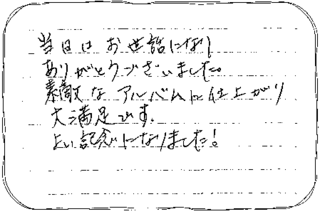 当日はお世話になり
ありがとうございました。
素敵なアルバムに仕上がり
大満足です。
よい記念になりました！